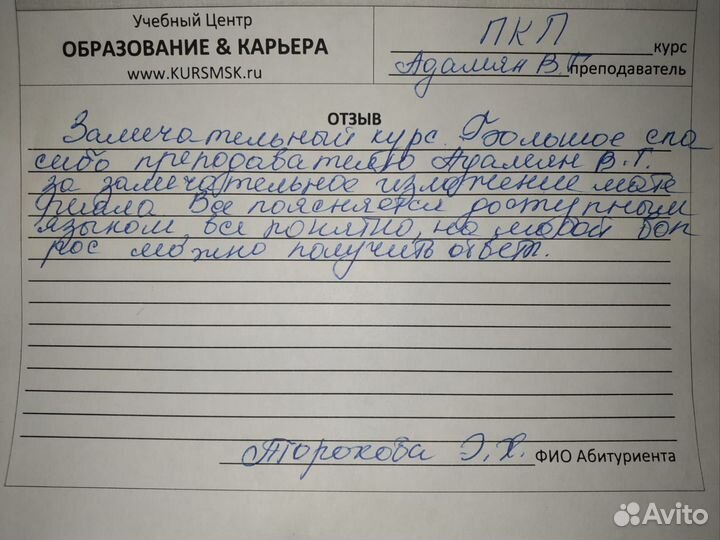 Учебный Центр
ОБРАЗОВАНИЕ & КАРЬЕРА
www.KURSMSK.ru
ПКП курс
Адамян В.Г. преподаватель
ОТЗЫВ
Замечательный курс. Большое спа
сибо преподавателю Адамян В.Г.
за замечательное изложение мате
риала Все поясняется доступным
языком, все понятно, на любой воп
рос можно получить ответ.
Торохова Э.Х. ФИО Абитуриента
Avito